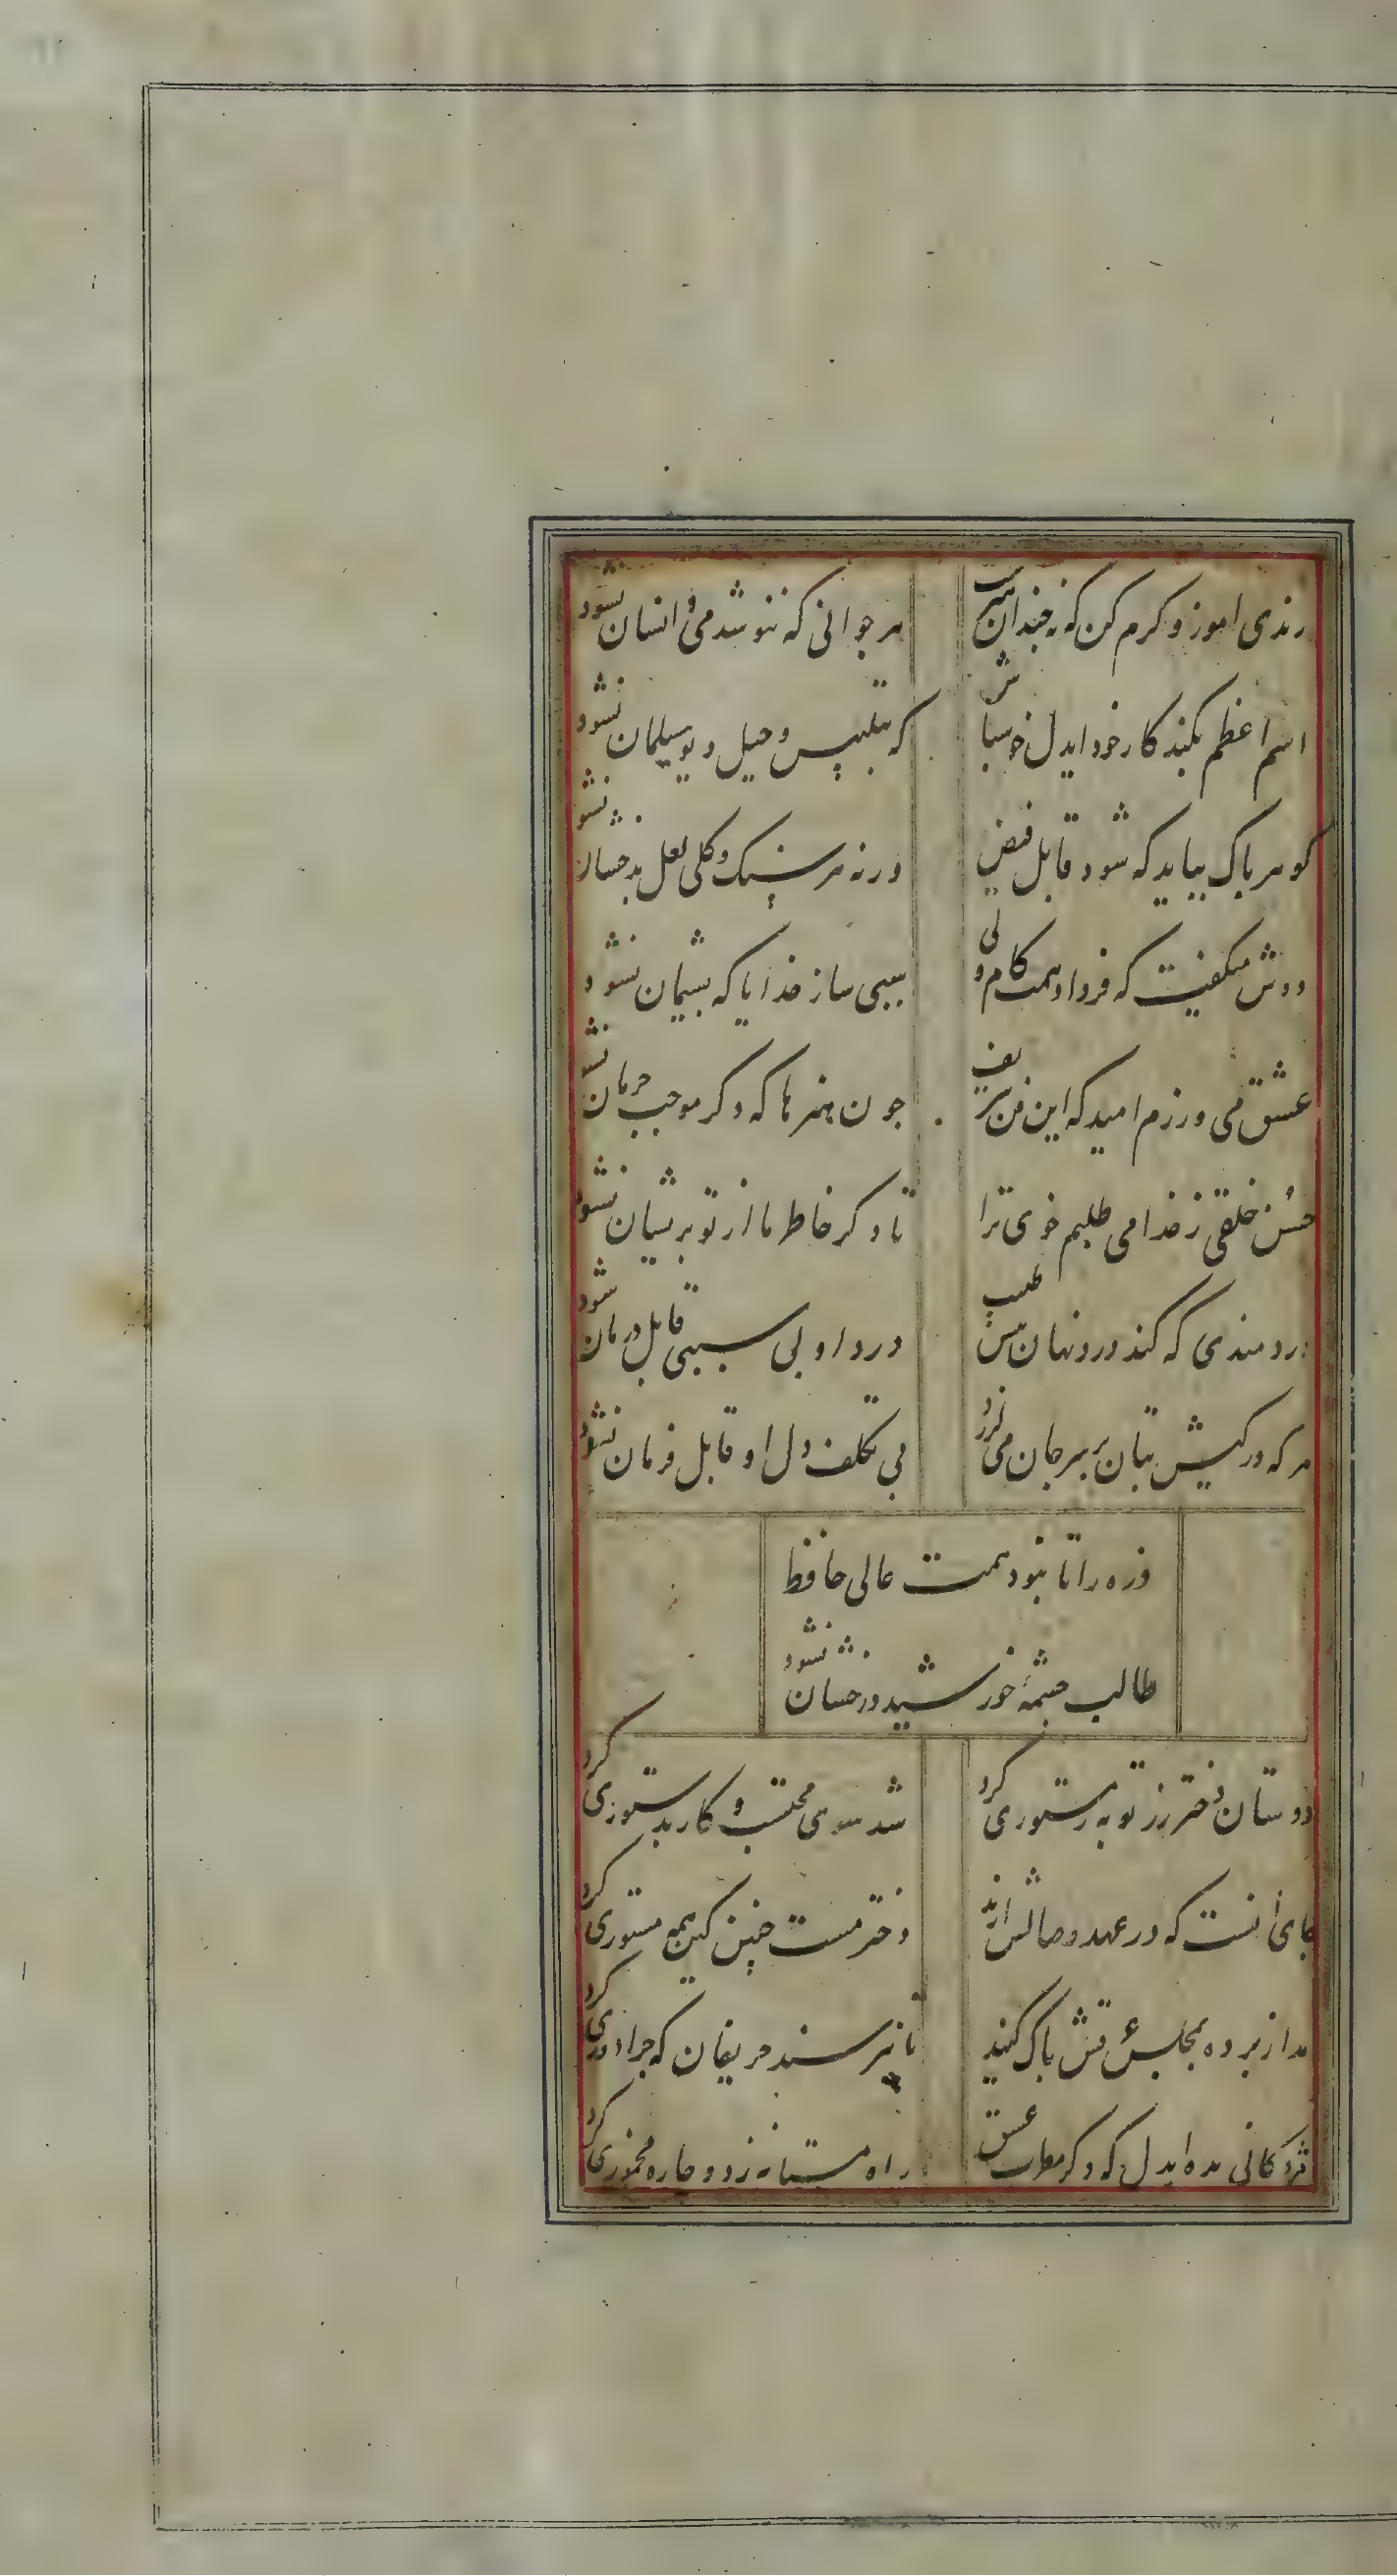 رندی اموز و کرم کن که نه چندان هنرست
هر جوانی که ننوشد می و انسان نشود
اسم اعظم بکند کار خود ایدل خوش باش
که بتلبیس و حیل دیو سلیمان نشود
کوهر باک بباید که شود قابل فیض
ورنه هر سنک و کلی لعل بدخشان نشود
دوش میکفت که فردا دهمت کام دلی
سببی ساز خدایا که بشیمان نشود
عشق می ورزم امید که این فن شریف
جون هنرها که دکر موجب حرمان نشود
حسن خلقی ز خدا می طلبم خوی ترا
تا دکر خاطر ما از تو بریشان نشود
دردمندی که کند درد نهان بیش طبیب
درد او بی سببی قابل درمان نشود
هر که در کیش بتان بر سر جان می لرزد
بی تکلف دل او قابل فرمان نشود
ذره را تا نبود همت عالی حافظ
طالب چشمهٔ خورشید درخشان نشود
دوستان دختر رز توبه ز مستوری کرد
شد سوی محتسب و کار بدستوری کرد
جای انست که در عهد وصالش ارند
دختر مست چنین کین همه مستوری کرد
امد از برده بمجلس عرقش باک کنید
تا نبرسند حریفان که چرا دوری کرد
مژدکانی بده ایدل که دکر مطرب عشق
راه مستانه زد و چاره مخموری کرد